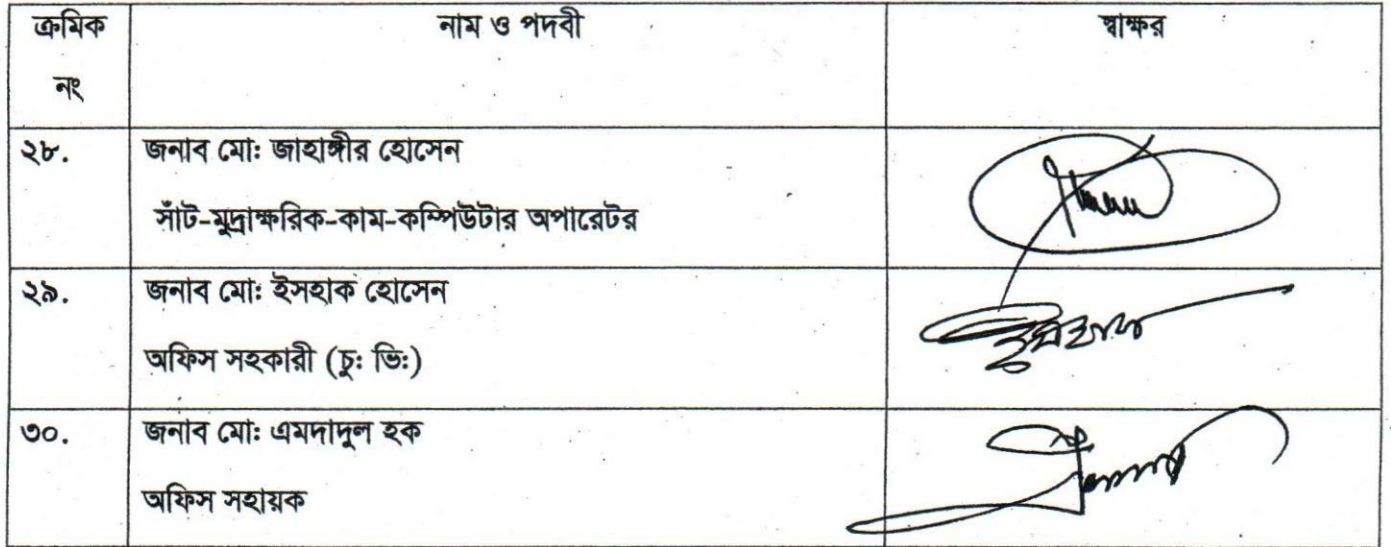 ক্রমিক নং	নাম ও পদবী	স্বাক্ষর
২৮.	জনাব মো: জাহাঙ্গীর হোসেন
সাঁট-মুদ্রাক্ষরিক-কাম-কম্পিউটার অপারেটর
২৯.	জনাব মো: ইসহাক হোসেন
অফিস সহকারী (চু: ভি:)
৩০.	জনাব মো: এমদাদুল হক
অফিস সহায়ক